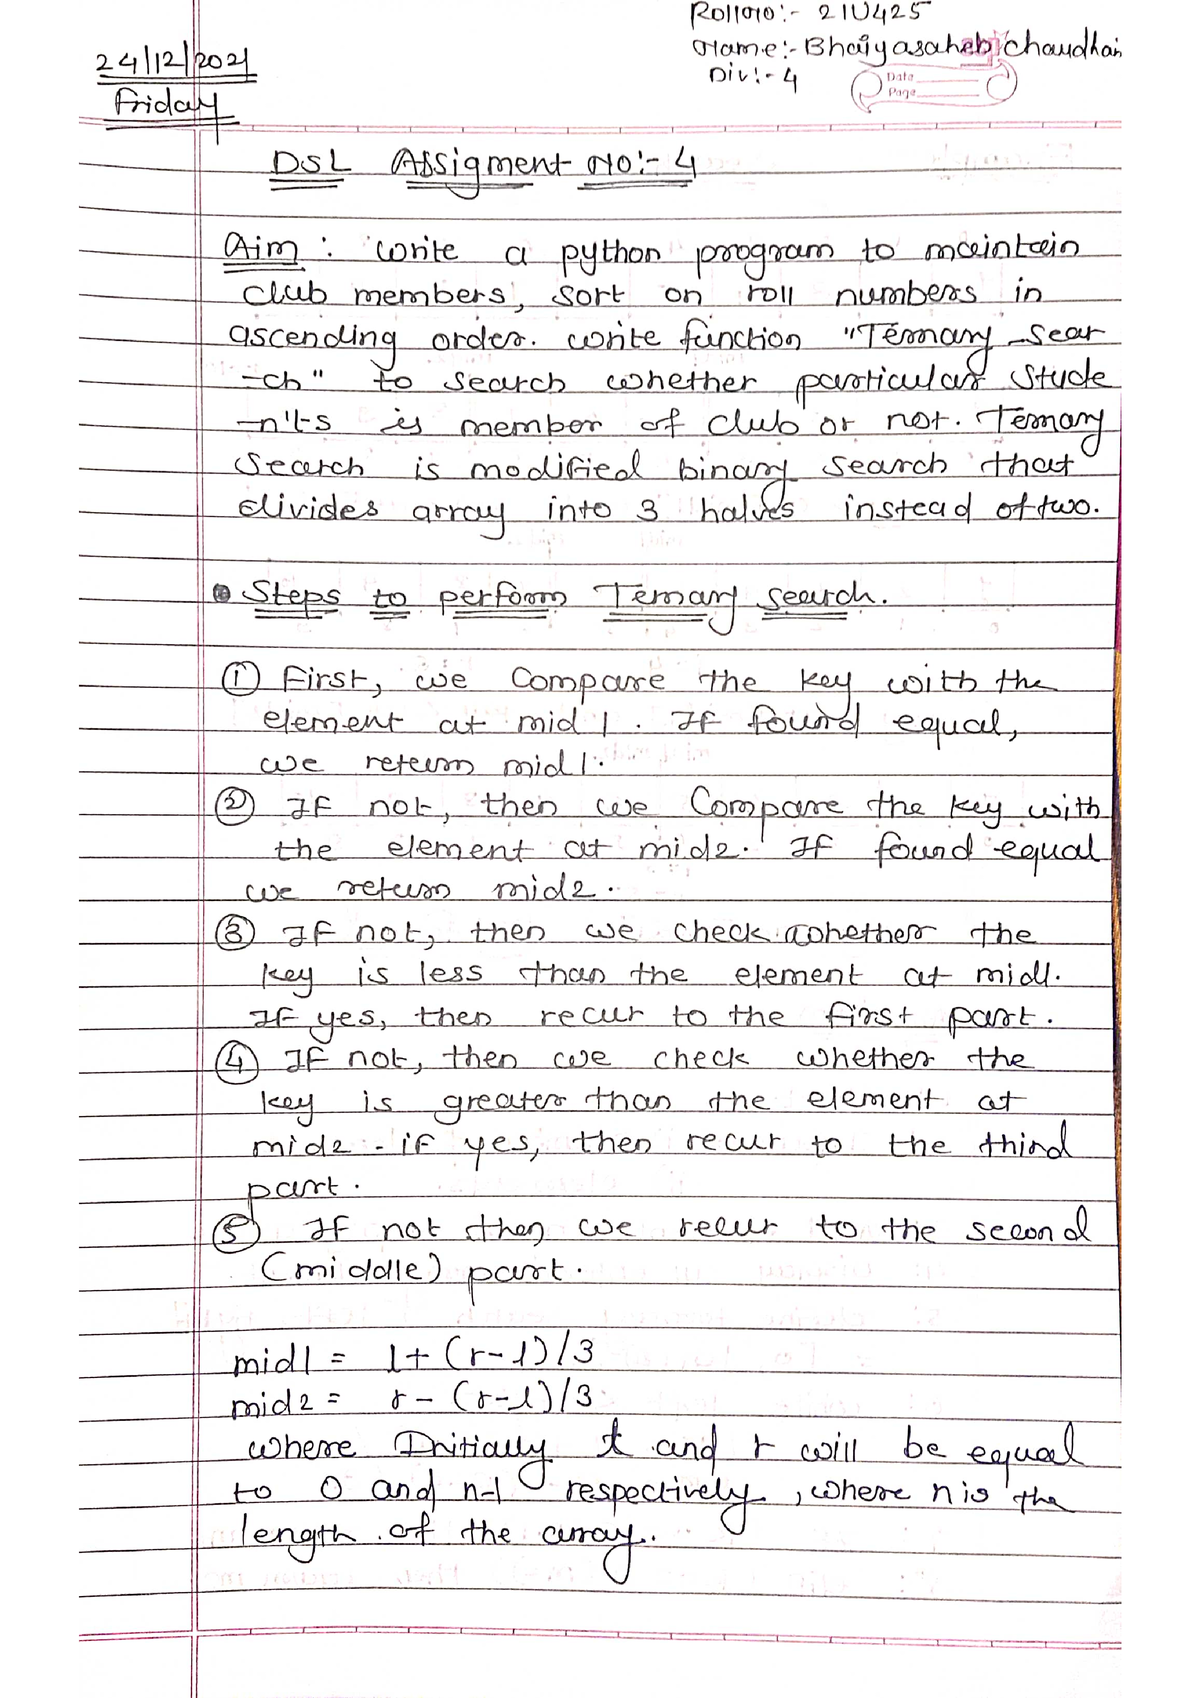 Rollno:- 21U425
24/12/2021
Name:- Bhaiyasaheb Chaudhari
Div:- 4
Date
Page
Friday
DSL Assigment No:- 4
Aim : Write a python program to maintain
club members, sort on roll numbers in
ascending order. write function "Ternary -sear
-ch" to search whether particular stude
-n'ts is member of club or not. Ternary
Search is modified binary search that
divides array into 3 halves instead of two.
Steps to perform Ternary search.
① First, we compare the key with the
element at mid 1. If found equal,
we return mid1.
② If not, then we Compare the key with
the element at mid2. If found equal
we return mid2.
③ If not, then we check whether the
key is less than the element at mid1.
If yes, then recur to the first part.
④ If not, then we check whether the
key is greater than the element at
mid2 - if yes, then recur to the third
part.
⑤ If not then we recur to the second
(middle) part.
mid1 = l+ (r-l)/3
mid2 = r- (r-l)/3
where Initially l and r will be equal
to 0 and n-1 respectively, where n is the
length of the array.